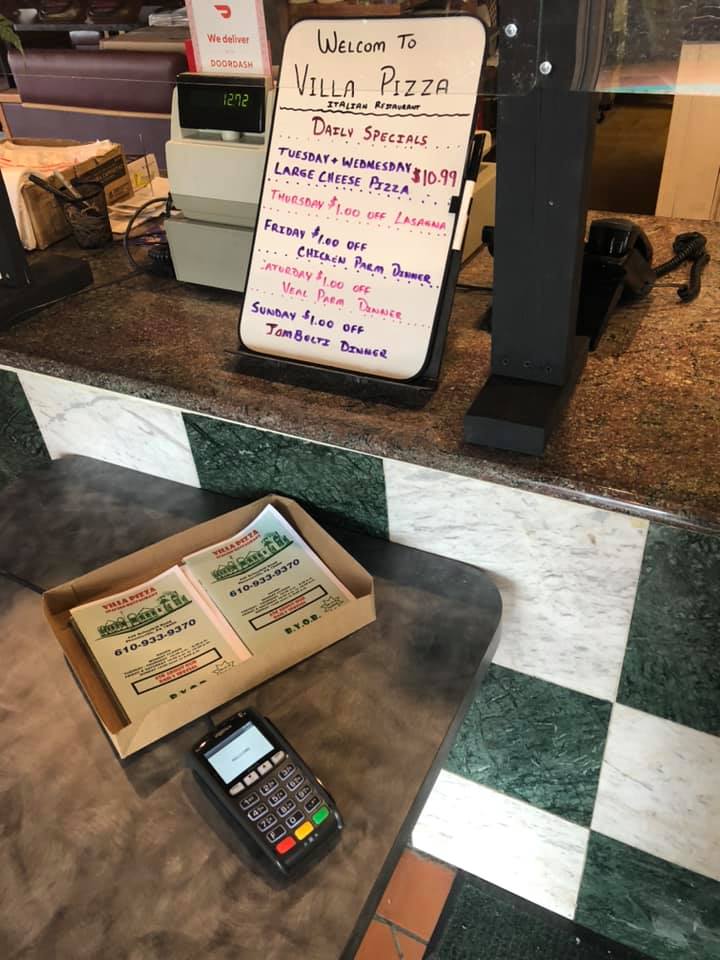 We deliver
DOORDASH
12.72
WELCOM TO
VILLA PIZZA
ITALIAN RESTAURANT
DAILY SPECIALS
TUESDAY + WEDNESDAY $10.99
LARGE CHEESE PIZZA
THURSDAY $1.00 OFF LASAGNA
FRIDAY $1.00 OFF
CHICKEN PARM DINNER
ATURDAY $1.00 OFF
VEAL PARM DINNER
SUNDAY $1.00 OFF
TOMBOLTI DINNER
VILLA PIZZA
610-933-9370
B.Y.O.B.
VILLA PIZZA
610-933-9370
B.Y.O.B.